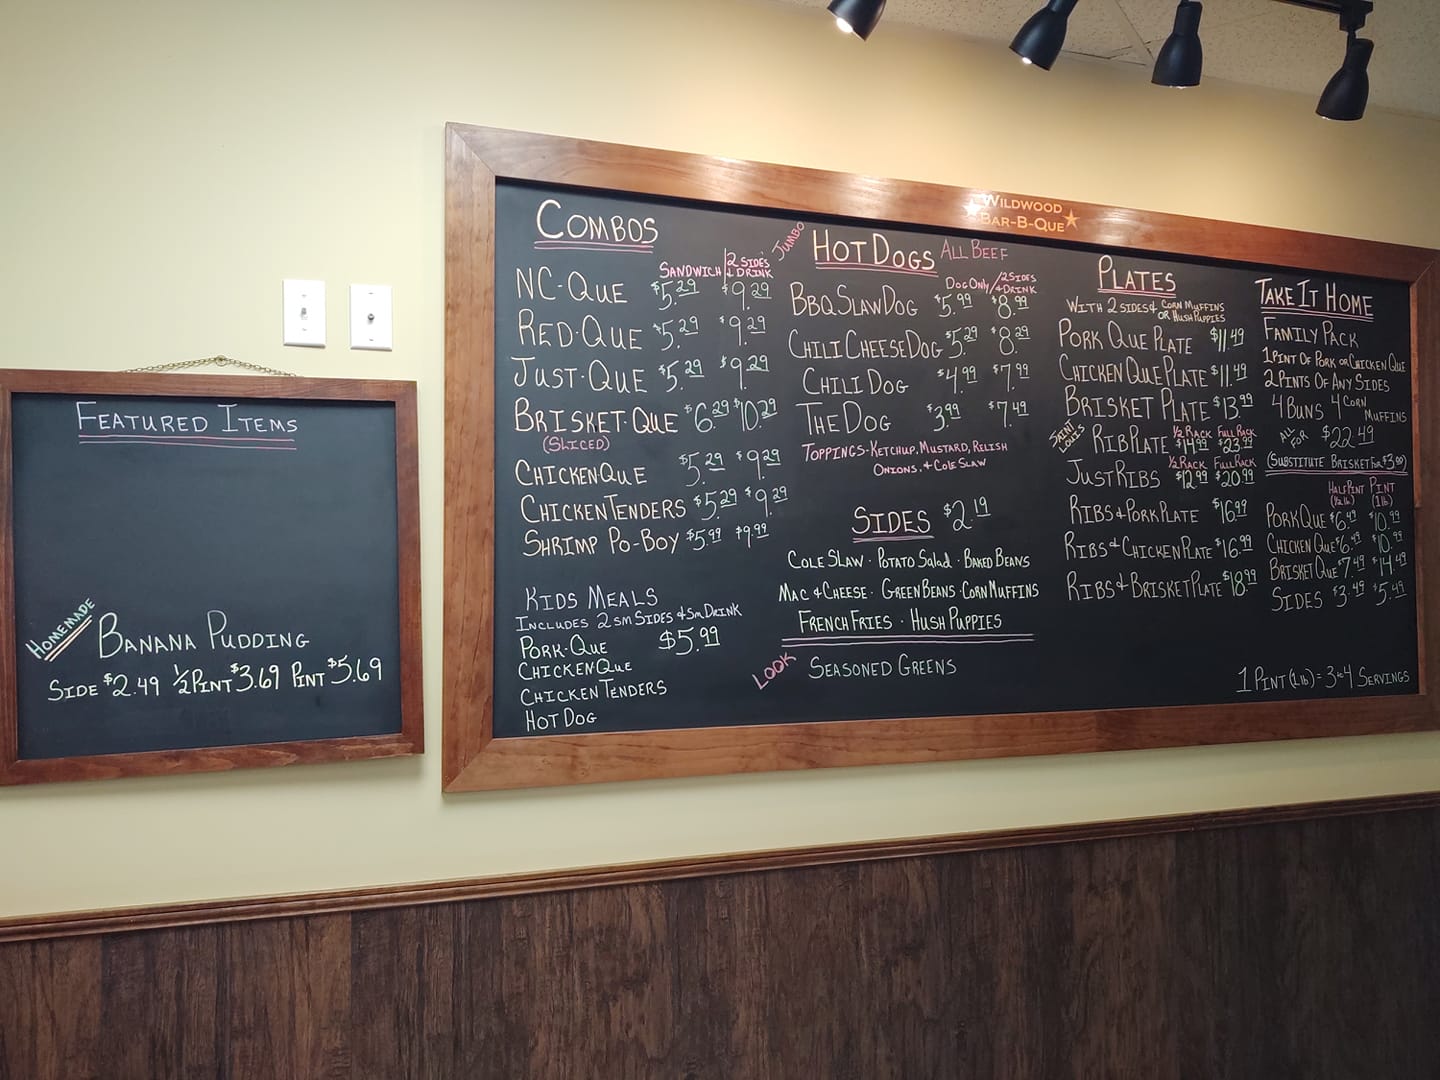 FEATURED ITEMS
HOMEMADE
BANANA PUDDING
SIDE $2.49 ½ PINT $3.69 PINT $5.69
WILDWOOD
BAR-B-QUE
COMBOS
SANDWICH / 2 SIDES & DRINK
NC-QUE $5.29 $9.29
RED-QUE $5.29 $9.29
JUST-QUE $5.29 $9.29
BRISKET-QUE $6.29 $10.29
(SLICED)
CHICKENQUE $5.29 $9.29
CHICKEN TENDERS $5.29 $9.29
SHRIMP PO-BOY $5.99 $9.99
KIDS MEALS
INCLUDES 2 SM SIDES & SM DRINK
PORK-QUE $5.99
CHICKENQUE
CHICKEN TENDERS
HOT DOG
JUMBO HOT DOGS ALL BEEF
DOG ONLY / 2 SIDES & DRINK
BBQ SLAW DOG $5.99 $8.99
CHILI CHEESE DOG $5.29 $8.29
CHILI DOG $4.99 $7.99
THE DOG $3.99 $7.49
TOPPINGS-KETCHUP, MUSTARD, RELISH
ONIONS, & COLE SLAW
SIDES $2.19
COLE SLAW · POTATO SALAD · BAKED BEANS
MAC & CHEESE · GREEN BEANS · CORN MUFFINS
FRENCH FRIES · HUSH PUPPIES
LOOK SEASONED GREENS
PLATES
WITH 2 SIDES & CORN MUFFINS
OR HUSH PUPPIES
PORK QUE PLATE $11.49
CHICKEN QUE PLATE $11.49
BRISKET PLATE $13.99
SAINT LOUIS
½ RACK FULL RACK
RIB PLATE $14.99 $23.99
½ RACK FULL RACK
JUST RIBS $12.99 $20.99
RIBS & PORK PLATE $16.99
RIBS & CHICKEN PLATE $16.99
RIBS & BRISKET PLATE $18.99
TAKE IT HOME
FAMILY PACK
1 PINT OF PORK OR CHICKEN QUE
2 PINTS OF ANY SIDES
4 BUNS 4 CORN MUFFINS
ALL FOR $22.49
(SUBSTITUTE BRISKET FOR $3.00)
HALF PINT PINT
(½ lb) (1 lb)
PORK QUE $6.49 $10.99
CHICKEN QUE $6.49 $10.99
BRISKET QUE $7.49 $14.49
SIDES $3.49 $5.49
1 PINT (1 lb) = 3 to 4 SERVINGS